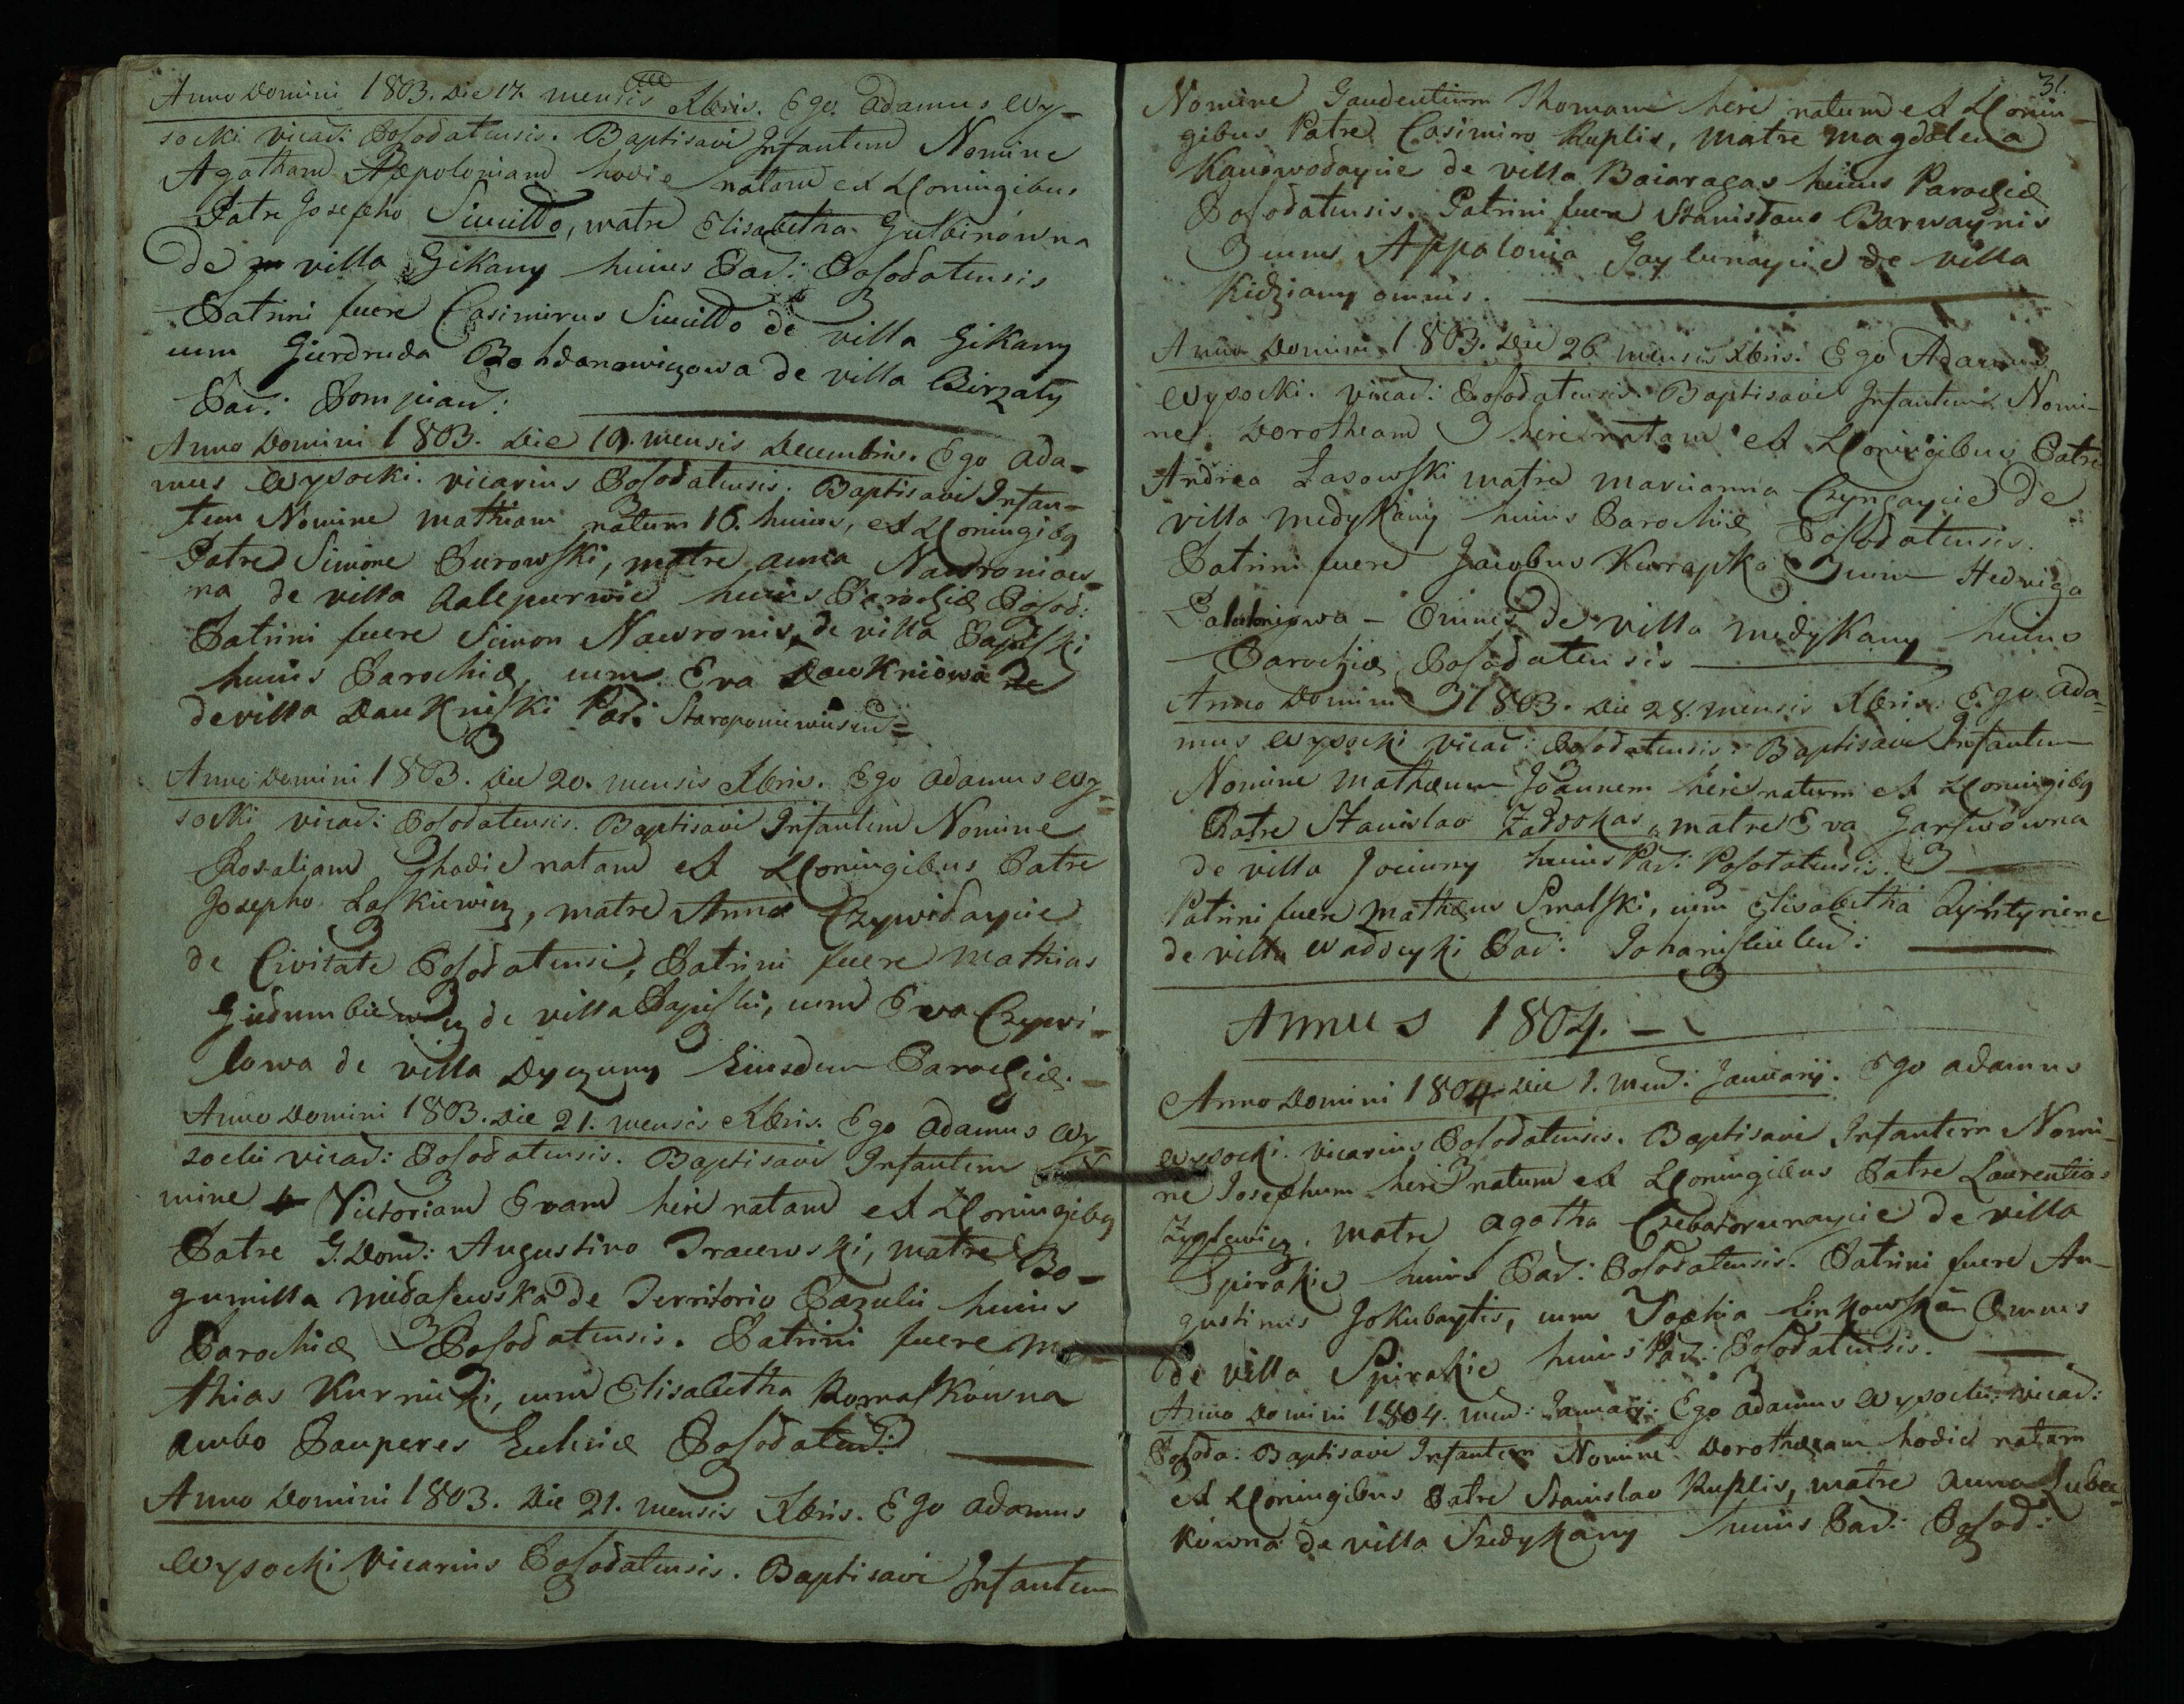 Anno Domini 1803. Die 17. mensis Xbris. Ego Adamus Wy-
socki vicar: Posodatensis. Baptisavi Infantem Nomine
Agatham Appoloniam hodie natam ex LConiugibus
Patre Josepho Siwiłło, matre Elisabetha Gulbinówna
de villa Gikany huius Par: Posodatensis
Patrini fuere Casimirus Siwiłło de villa Gikany
cum Gierdruda Bohdanowiczowa de villa Birzały
Par: Pompian:
Anno Domini 1803. Die 19. mensis Decembris. Ego Ada-
mus Wysocki. vicarius Posodatensis. Baptisavi Infan-
tem Nomine Mathiam natum 16. huius, ex LConiugibq
Patre Simone Purowski, matre Anna Nawroniow-
na de villa huius Parochiæ Posod:
Patrini fuere Simon Nawronis, de villa Papiszki
huius Parochiæ, cum Eva Dawkniowa
de villa Daukniszki Par: Staroponiewiesen=
Anno Domini 1803. Die 20. mensis Xbris. Ego Adamus Wy=
socki vicar: Posodatensis. Baptisavi Infantem Nomine
Rosaliam hodie natam ex LConiugibus Patre
Josepho Laskiewicz, matre Anna Czywidaycie
de Civitate Posodatensi, Patrini fuere Mathias
Giedumbiewicz de villa Papiszki, cum Eva Czywi-
lowa de villa Dyczuny Eiusdem Parochiæ. -
Anno Domini 1803. Die 21. mensis Xbris. Ego Adamus Wy-
socki vicar: Posodatensis. Baptisavi Infantem No-
mine Victoriam Evam heri natam ex LConiugibq
Patre G. Dom: Augustino Iracewski, matre Bo-
gumilla Midaszewska de Territorio Pazulii huius
Parochiæ Posodatensis. Patrini fuere Ma-
thias Kurnicki, cum Elisabetha Romaszkowna
ambo Pauperes Ecclesiæ Posodaten:
Anno Domini 1803. Die 21. mensis Xbris. Ego Adamus
Wysocki Vicarius Posodatensis. Baptisavi Infantem
31.
Nomine Gaudentium Thomam heri natum ex LConiu-
gibus Patre Casimiro Kuplis, Matre Magdalena
Kanowodaycie de villa Baiaragas huius Parochiæ
Posodatensis. Patrini fuere Stanislaus Barwaynis
cum Appalonia Gaylunaycie de villa
Kidziany omnes.
Anno Domini 1803. Die 26 mensis Xbris. Ego Adamus
Wysocki. vicar: Posodatensis. Baptisavi Infantem Nomi-
ne Dorotheam heri natam ex LConiugibus Patre
Andrea Łasowski matre Marianna Czyngaycie de
villa Medykany huius Parochiæ Posodatensis.
Patrini fuere Jacobus Kurapka cum Hedviga
Paluloniowa - Omnes de villa Medykany huius
Parochiæ Posodatensis
Anno Domini 1803. Die 28. mensis Xbris. Ego Ada=
mus Wysocki vicar: Posodatensis. Baptisavi Infantem
Nomine Mathæum Joannem heri natum ex LConiugibq
Patre Stanislao Żaddokas, matre Eva Garszwówna
de villa Jociuny huius Par: Posodatensis.
Patrini fuere Mathæus Smalski, cum Elisabetha Zyntyriene
de villa Waddeyki Par: Johaniszkielen:
Annus 1804. -
Anno Domini 1804 Die 1. Men: Januarij. Ego Adamus
Wysocki. vicarius Posodatensis. Baptisavi Infantem Nomi-
ne Josephum heri natum ex LConiugibus Patre Laurentio
Zyplewicz, matre Agatha Czebatorunaycie de villa
Spirakie huius Par: Posodatensis. Patrini fuere Au-
gustinus Jokubaytis, cum Sophia Linkowska Omnes
de villa Spirakie huius Par: Posodatensis.
Anno Domini 1804. Men: Januarij: Ego Adamus Wysocki: vicar:
Posoda: Baptisavi Infantem Nomine Dorotheam hodie natam
ex LConiugibus Patre Stanislao Kuplis, matre Anna Lubec-
kówna de villa Szedykany huius Par: Posod: